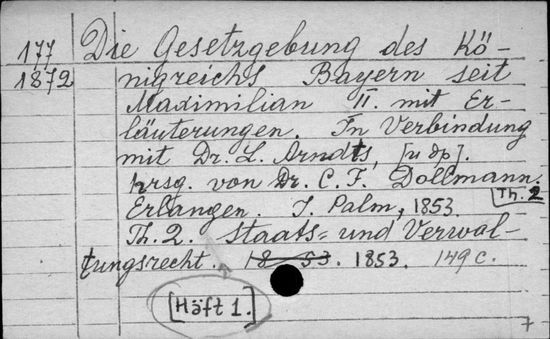 177 Die Gesetzgebung des Kö-
1872 nigreichs Bayern seit
Maximilian II. mit Er-
läuterungen. In Verbindung
mit Dr. L. Arndts, [и др].
hrsg. von Dr. C. F. Dollmann.
Th. 2
Erlangen. J. Palm, 1853.
Th. 2. Staats- und Verwal-
tungsrecht. 18 53. 1853. 149 c.
[Häft 1.]
7